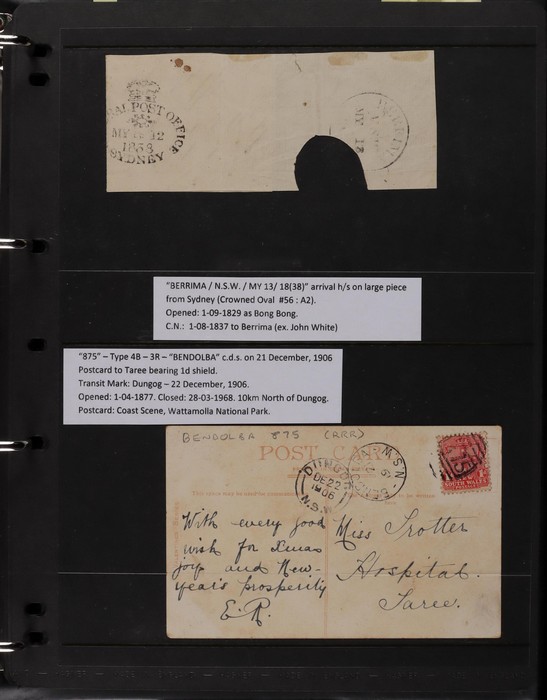 POST OFFICE
MY 12
1838
SYDNEY
BERRIMA
MY 13
"BERRIMA / N.S.W. / MY 13/ 18(38)" arrival h/s on large piece
from Sydney (Crowned Oval #56 : A2).
Opened: 1-09-1829 as Bong Bong.
C.N.: 1-08-1837 to Berrima (ex. John White)
"875" – Type 4B – 3R – "BENDOLBA" c.d.s. on 21 December, 1906
Postcard to Taree bearing 1d shield.
Transit Mark: Dungog – 22 December, 1906.
Opened: 1-04-1877. Closed: 28-03-1968. 10km North of Dungog.
Postcard: Coast Scene, Wattamolla National Park.
BENDOLBA 875 (RRR)
POST CARD
DUNGOG
DE 22
1906
N.S.W
N.S.W
With every good
wish for Xmas
joys and New-
year's prosperity
E.R.
Miss Trotter
Hospital.
Taree.